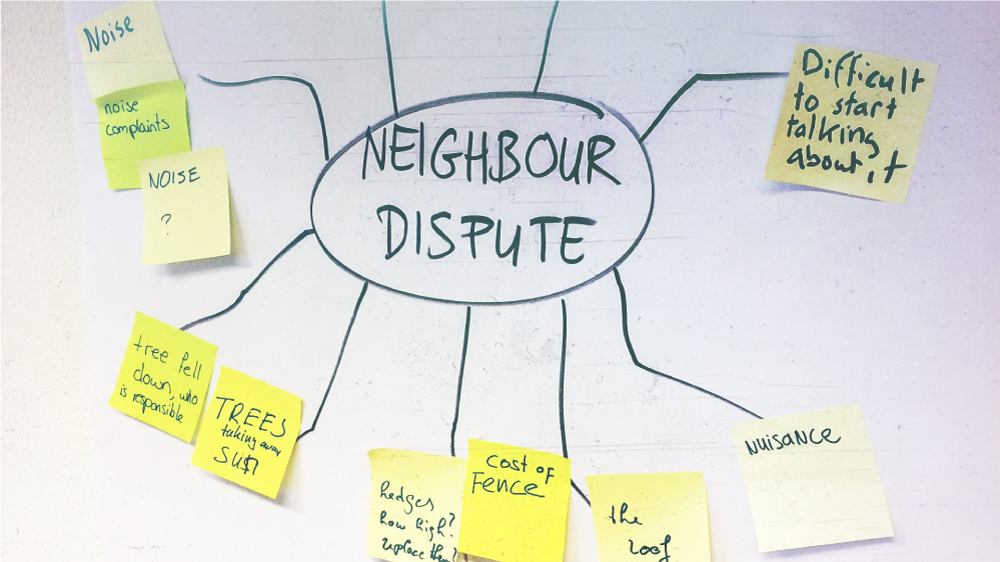 Noise
noise
complaints
NOISE
?
NEIGHBOUR
DISPUTE
Difficult
to start
talking
about it
tree fell
down, who
is responsible
TREES
taking away
SUN
hedges
how high?
replace them?
cost of
Fence
the
roof
NUISANCE